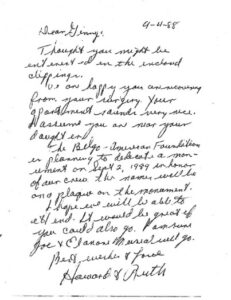 9-4-88
Dear Ginny:
Thought you might be
interested in the enclosed
clippings.
We are happy you are recovering
from your surgery. Your
apartment sounds very nice.
I assume you are near your
daughter.
The Belgo-American Foundation
is planning to dedicate a mon-
ument on Sept 2, 1989 in honor
of our crew. The names will be
on a plaque on the monument.
I hope we will be able to
attend. It would be great if
you could also go.
Joe & Elanore Musial will go.
Best wishes & love
Howard & Ruth